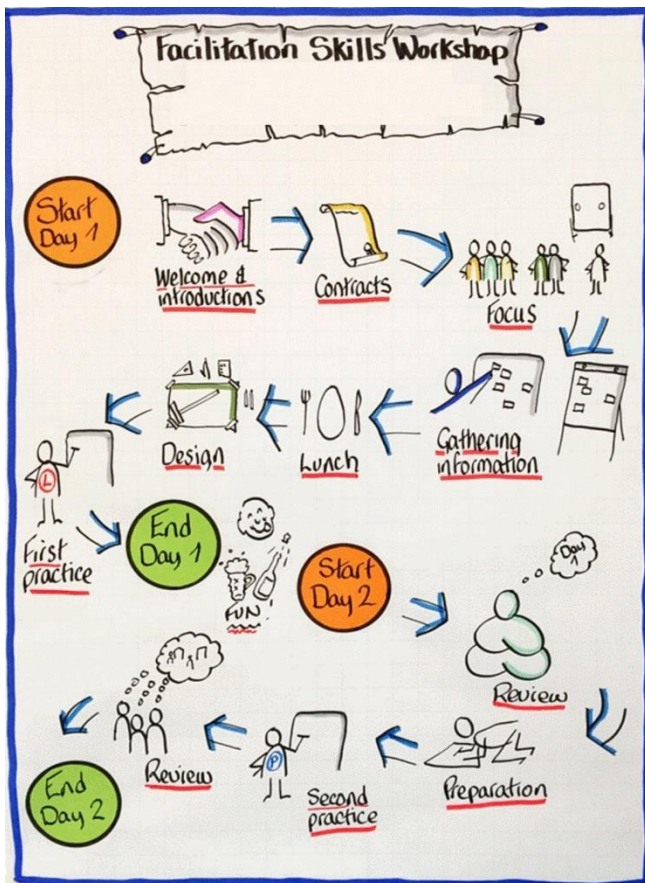 Facilitation Skills Workshop
Start
Day 1
Welcome &
introductions
Contracts
Focus
Gathering
information
Lunch
Design
L
First
practice
End
Day 1
FUN
Start
Day 2
Day
1
Review
Preparation
P
Second
practice
Review
End
Day 2